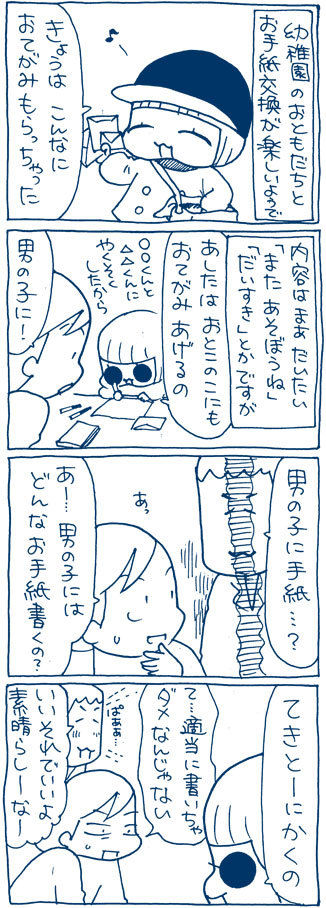 幼稚園のおともだちと
お手紙交換が楽しいようで
♪
きょうは こんなに
おてがみもらっちゃった
内容はまあ だいたい
「また あそぼうね」
「だいすき」とかですが
あしたは おとこのこにも
おてがみ あげるの
○○くんと
△△くんに
やくそく
したから
男の子に！
男の子に手紙…？
あっ
あー… 男の子には
どんなお手紙書くの？
てきとーにかくの
て…適当に書いちゃ
ダメなんじゃない
ぱああ…
いいそれでいいよ
素晴らしーなー